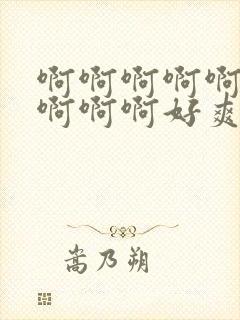 啊啊啊啊啊
啊啊啊好爽
嵩乃朔